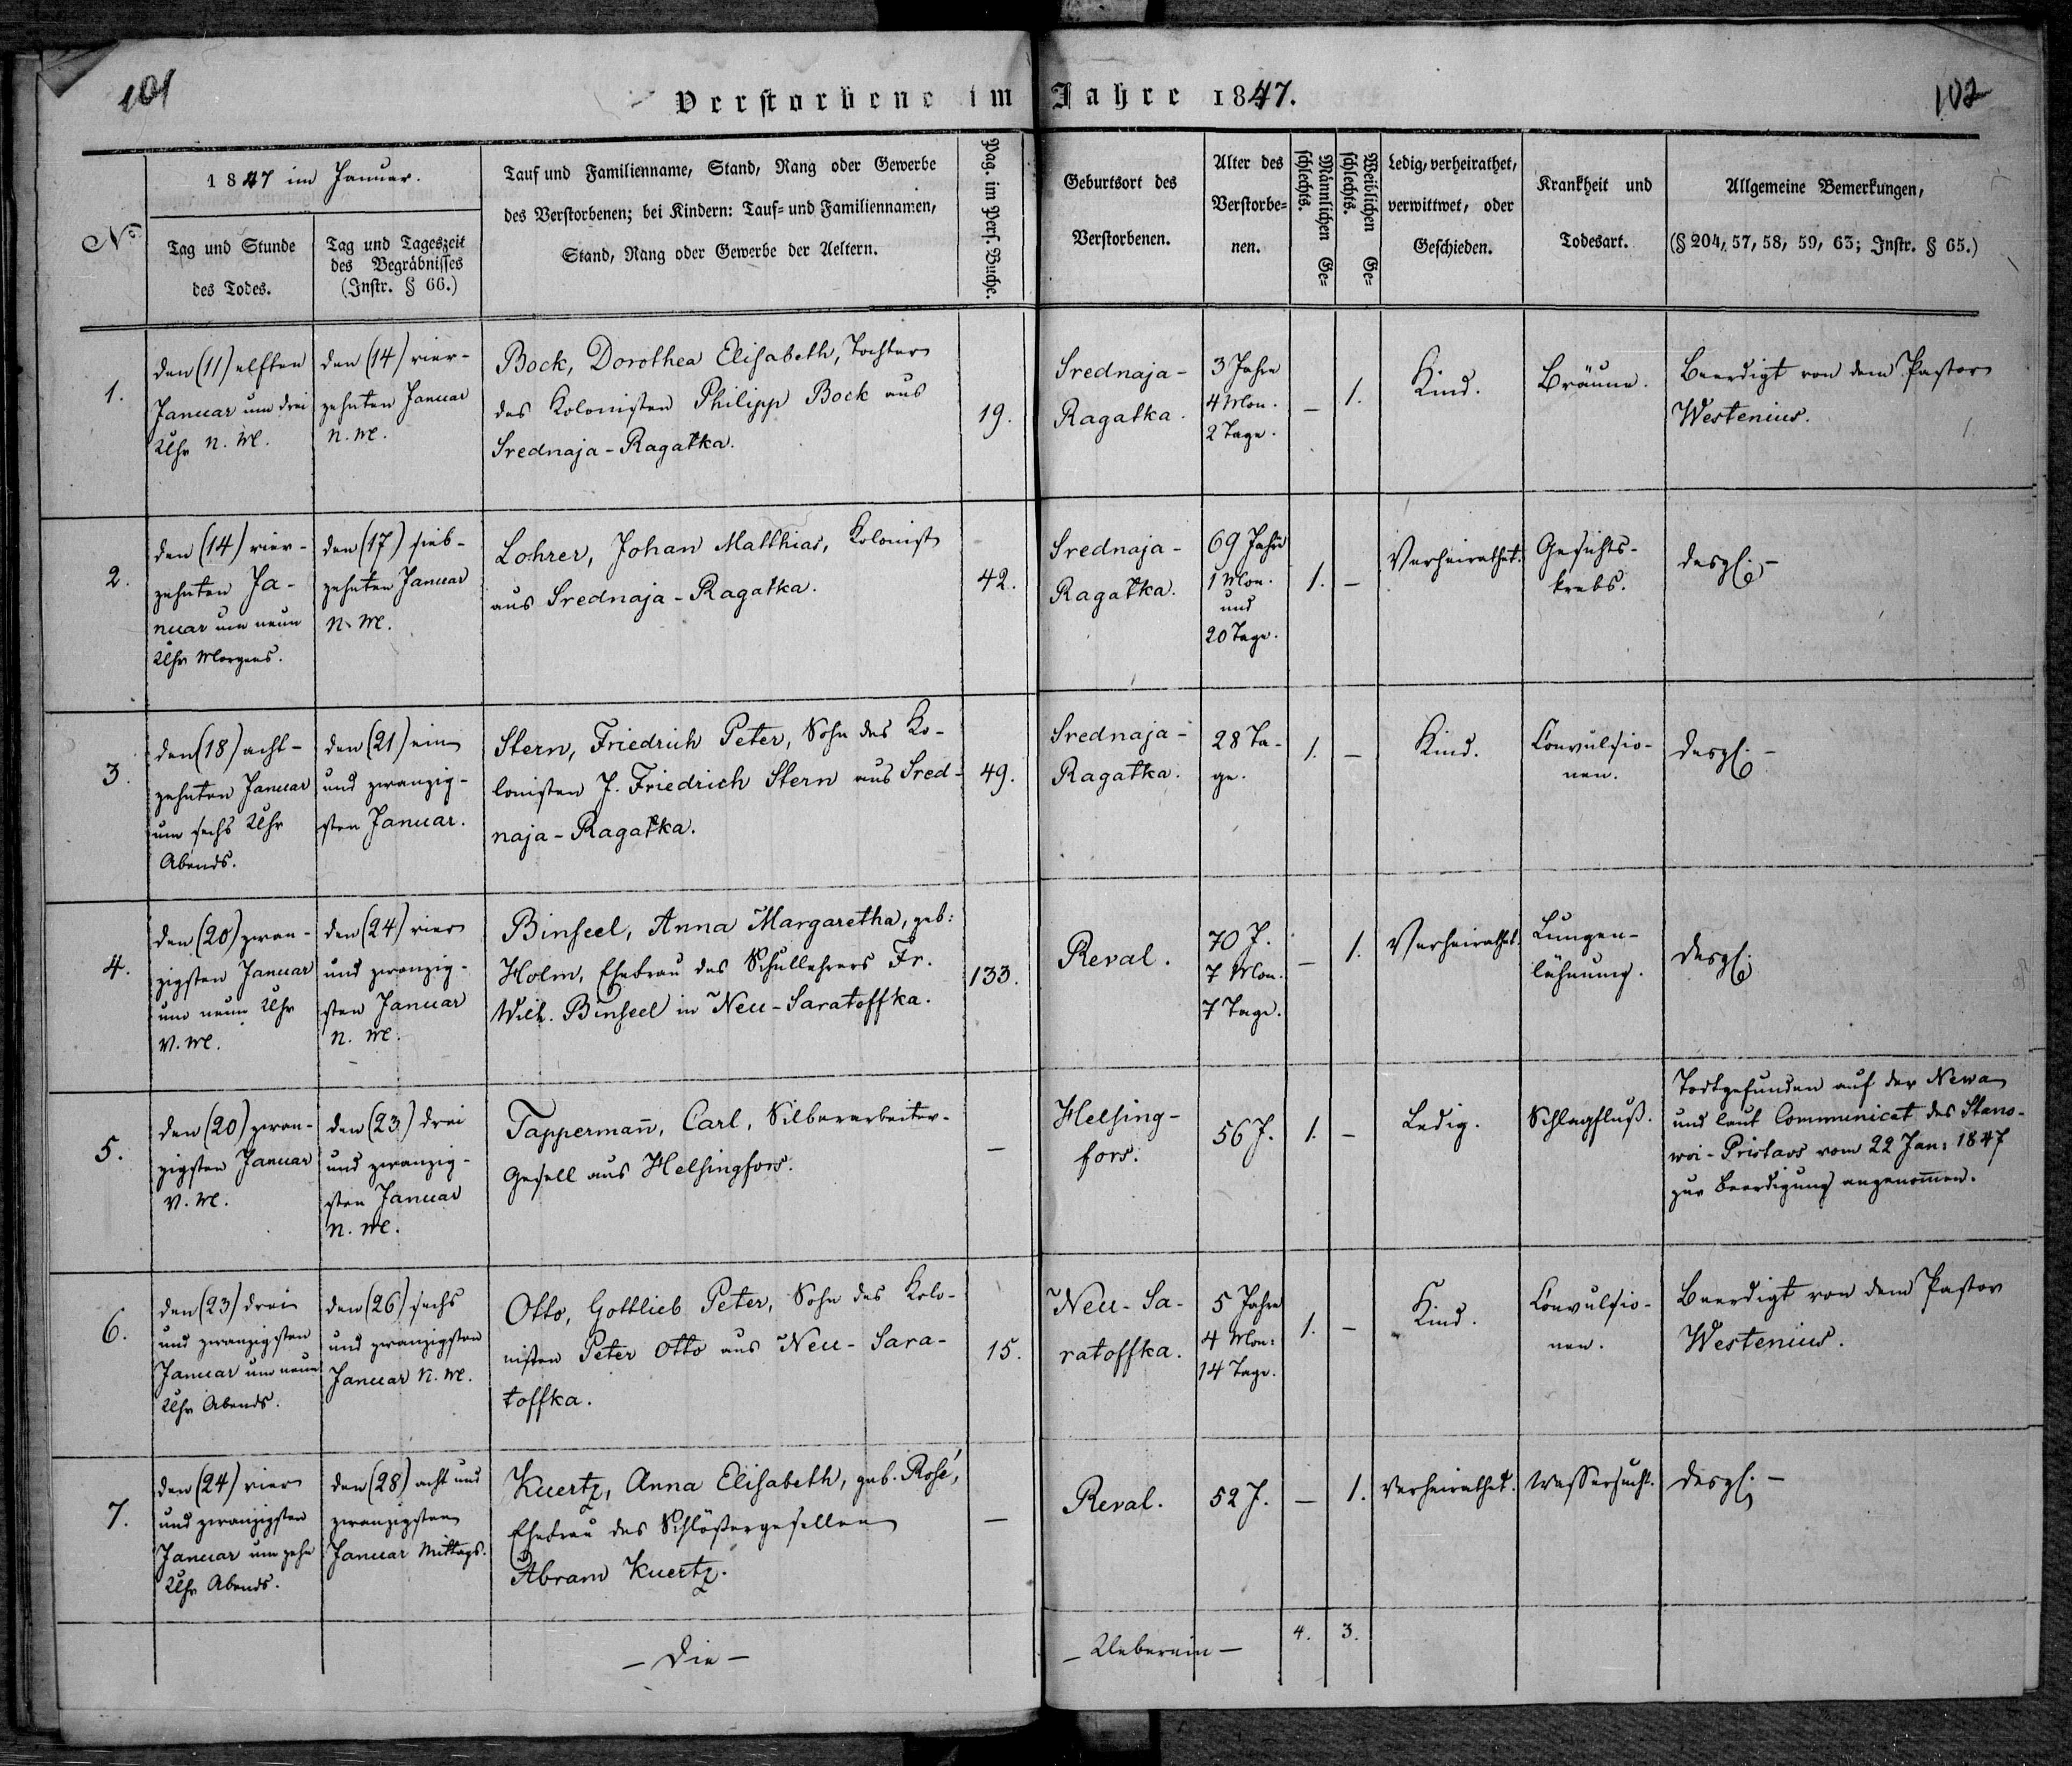 101
Verstorbene im Jahre 1847.
102
No
1847 im Januar.
Tag und Stunde
des Todes.
Tag und Tageszeit
des Begräbnisses
(Instr. § 66.)
Tauf und Familienname, Stand, Rang oder Gewerbe
des Verstorbenen; bei Kindern: Tauf- und Familiennamen,
Stand, Rang oder Gewerbe der Aeltern.
Pag. im Pers. Buche.
Geburtsort des
Verstorbenen.
Alter des
Verstorbe-
nen.
Männlichen Ge-
schlechts.
Weiblichen Ge-
schlechts.
Ledig, verheirathet,
verwittwet, oder
Geschieden.
Krankheit und
Todesart.
Allgemeine Bemerkungen,
(§ 204, 57, 58, 59, 63; Instr. § 65.)
1.
den (11) elften
Januar um drei
Uhr N. M.
den (14) vier-
zehnten Januar
N. M.
Bock, Dorothea Elisabeth, Tochter
des Kolonisten Philipp Bock aus
Srednaja-Ragatka.
19.
Srednaja-
Ragatka.
3 Jahre
4 Mon.
2 Tage.
—
1.
Kind.
Bräune.
Beerdigt von dem Pastor
Westenius.
2.
den (14) vier-
zehnten Ja-
nuar um neun
Uhr Morgens.
den (17) sieb-
zehnten Januar
N. M.
Lohrer, Johan Matthias, Kolonist
aus Srednaja-Ragatka.
42.
Srednaja-
Ragatka.
69 Jahre
1 Mon.
und
20 Tage.
1.
—
Verheirathet.
Gesichts-
krebs.
desgl. —
3.
den (18) acht-
zehnten Januar
um sechs Uhr
Abends.
den (21) ein
und zwanzig-
sten Januar.
Stern, Friedrich Peter, Sohn des Ko-
lonisten J. Friedrich Stern aus Sred-
naja-Ragatka.
49.
Srednaja-
Ragatka.
28 Ta-
ge.
1.
—
Kind.
Convulsio-
nen.
desgl. —
4.
den (20) zwan-
zigsten Januar
um neun Uhr
V. M.
den (24) vier
und zwanzig-
sten Januar
N. M.
Binseel, Anna Margaretha, geb:
Holm, Ehefrau des Schullehrers Fr.
Wilh. Binseel in Neu-Saratoffka.
133.
Reval.
70 J.
7 Mon.
7 Tage.
—
1.
Verheirathet.
Lungen-
lähmung.
desgl.
5.
den (20) zwan-
zigsten Januar
V. M.
den (23) drei
und zwanzig-
sten Januar
N. M.
Tappermañ, Carl, Silberarbeiter-
Gesell aus Helsingfors.
—
Helsing-
fors.
56 J.
1.
—
Ledig.
Schlagfluß.
Todtgefunden auf der Newa
und laut Communicat des Stano-
woi-Pristavs vom 22 Jan: 1847
zur Beerdigung angenom̄en.
6.
den (23) drei
und zwanzigsten
Januar um neun
Uhr Abends.
den (26) sechs
und zwanzigsten
Januar N. M.
Otto, Gottlieb Peter, Sohn des Kolo-
nisten Peter Otto aus Neu-Sara-
toffka.
15.
Neu-Sa-
ratoffka.
5 Jahre
4 Mon:
14 Tage.
1.
—
Kind.
Convulsio-
nen.
Beerdigt von dem Pastor
Westenius.
7.
den (24) vier
und zwanzigsten
Januar um zehn
Uhr Abends.
den (28) acht und
zwanzigsten
Januar Mittags.
Kuertz, Anna Elisabeth, geb. Rosé,
Ehefrau des Schlößergesellen
Abram Kuertz.
—
Reval.
52 J.
—
1.
Verheirathet.
Wassersucht.
desgl. —
— Die —
— Ueberein —
4.
3.